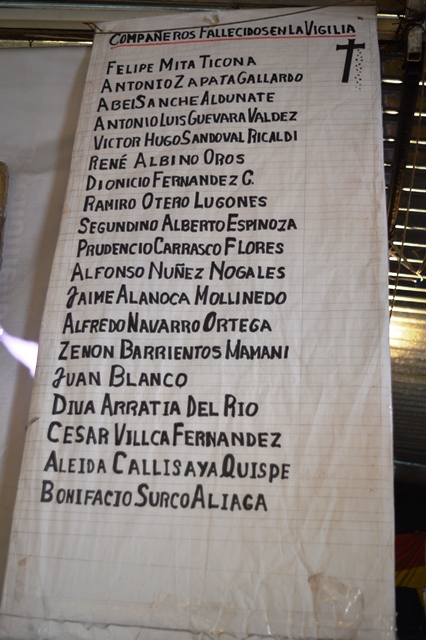 COMPAÑEROS FALLECIDOS EN LA VIGILIA
FELIPE MITA TICONA
ANTONIO ZAPATA GALLARDO
ABEL SANCHE ALDUNATE
ANTONIO LUIS GUEVARA VALDEZ
VICTOR HUGO SANDOVAL RICALDI
RENÉ ALBINO OROS
DIONICIO FERNANDEZ C.
RAMIRO OTERO LUGONES
SEGUNDINO ALBERTO ESPINOZA
PRUDENCIO CARRASCO FLORES
ALFONSO NUÑEZ NOGALES
JAIME ALANOCA MOLLINEDO
ALFREDO NAVARRO ORTEGA
ZENON BARRIENTOS MAMANI
JUAN BLANCO
DIVA ARRATIA DEL RIO
CESAR VILLCA FERNANDEZ
ALEIDA CALLISAYA QUISPE
BONIFACIO SURCO ALIAGA